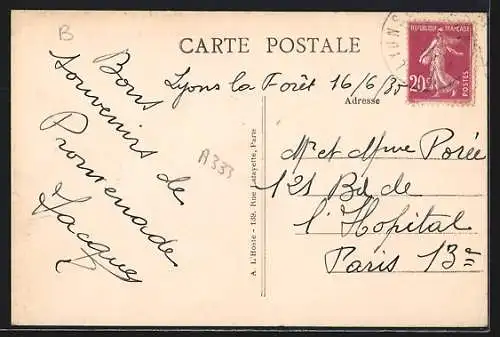 B
CARTE POSTALE
Lyons la Forêt 16/6/35
Adresse
Bons
souvenirs de
Promenade
Jacques
A333
A. L'Hoste - 139, Rue Lafayette, Paris
Mr et Mme Porée
121 Bd de
l'Hopital
Paris 13e
REPUBLIQUE FRANÇAISE
20c
POSTES
LYONS